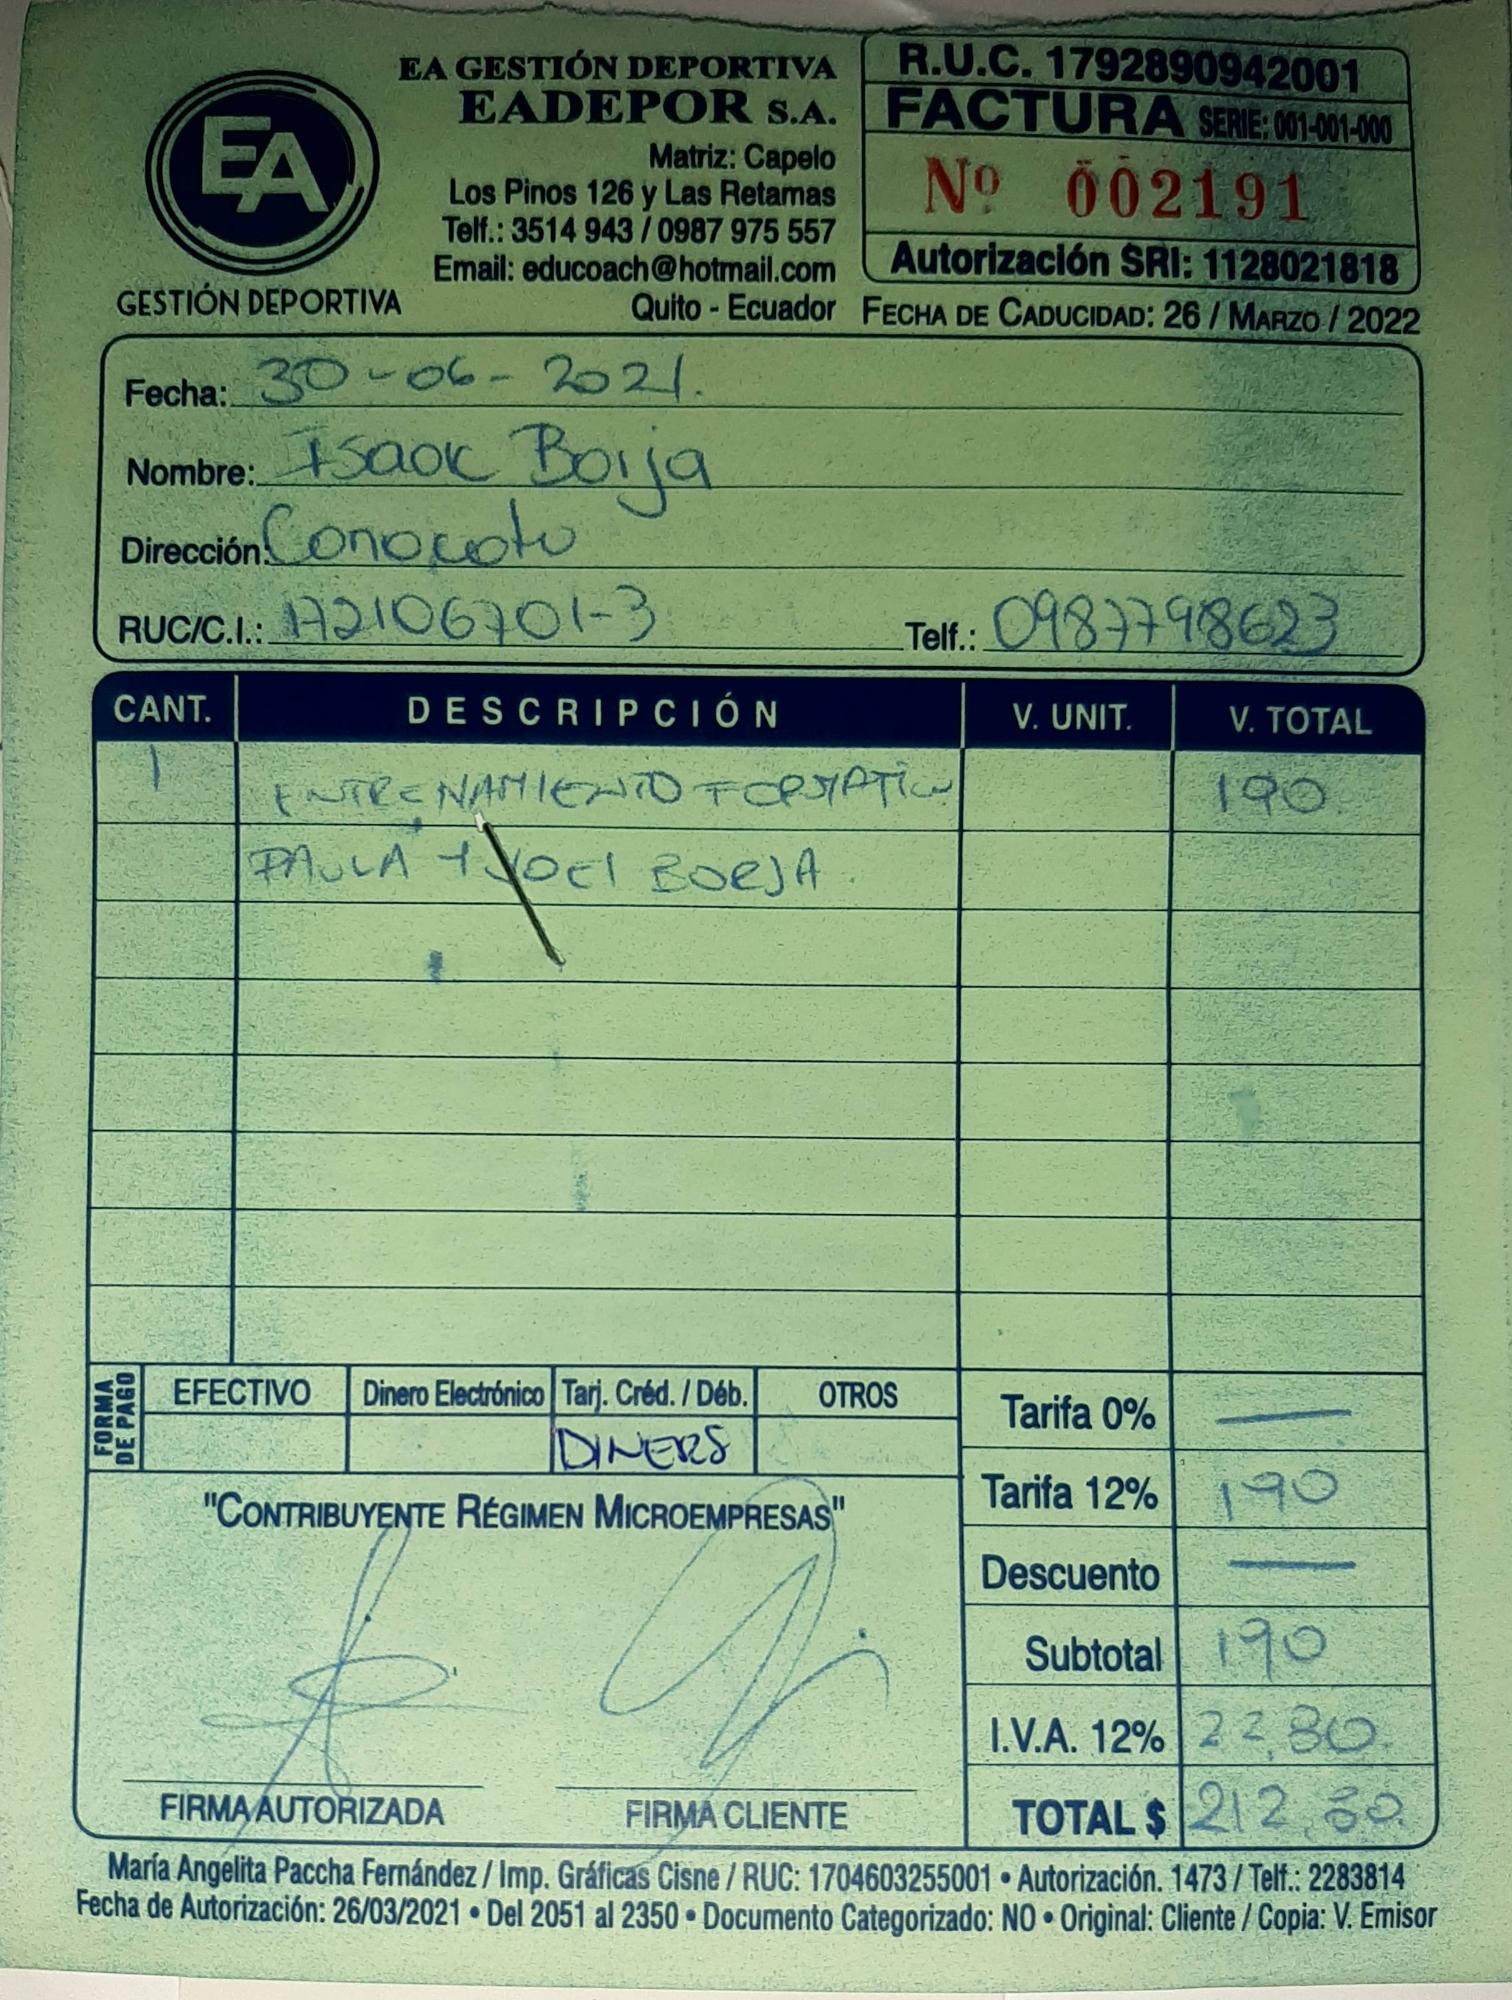 EA
GESTIÓN DEPORTIVA
EA GESTIÓN DEPORTIVA
EADEPOR S.A.
Matriz: Capelo
Los Pinos 126 y Las Retamas
Telf.: 3514 943 / 0987 975 557
Email: educoach@hotmail.com
Quito - Ecuador
R.U.C. 1792890942001
FACTURA SERIE: 001-001-000
Nº 002191
Autorización SRI: 1128021818
FECHA DE CADUCIDAD: 26 / MARZO / 2022
Fecha: 30-06-2021.
Nombre: Isaac Borja
Dirección: Conocoto
RUC/C.I.: 172106701-3 Telf.: 0987798623
CANT. DESCRIPCIÓN V. UNIT. V. TOTAL
1 ENTRENAMIENTO FORMATIVO 190
PAULA Y JOEL BORJA.
FORMA DE PAGO
EFECTIVO Dinero Electrónico Tarj. Créd. / Déb. OTROS
DINERS
"CONTRIBUYENTE RÉGIMEN MICROEMPRESAS"
FIRMA AUTORIZADA FIRMA CLIENTE
Tarifa 0% —
Tarifa 12% 190
Descuento —
Subtotal 190
I.V.A. 12% 22,80
TOTAL $ 212,80
María Angelita Paccha Fernández / Imp. Gráficas Cisne / RUC: 1704603255001 • Autorización. 1473 / Telf.: 2283814
Fecha de Autorización: 26/03/2021 • Del 2051 al 2350 • Documento Categorizado: NO • Original: Cliente / Copia: V. Emisor